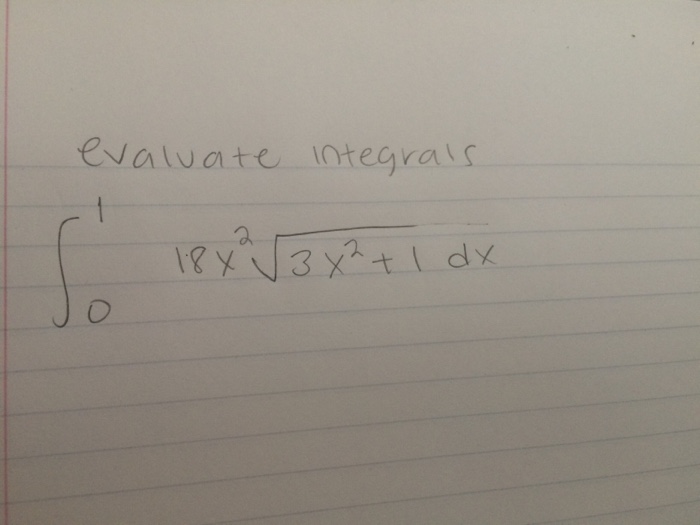 evaluate integrals
∫₀¹ 18x²√(3x²+1) dx